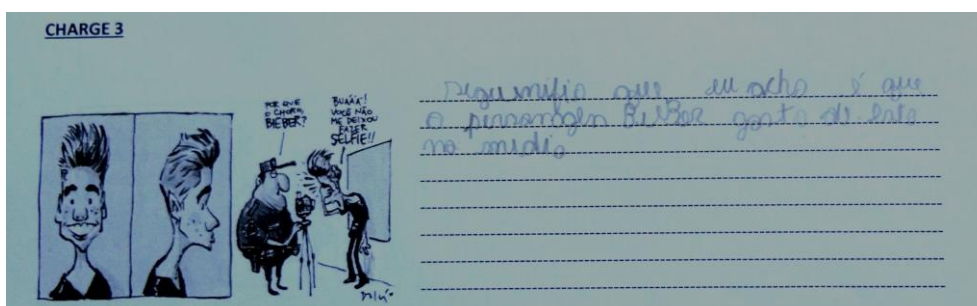 CHARGE 3
POR QUE
O CHORO,
BIEBER?
BUÁÁÁ!
VOCÊ NÃO
ME DEIXOU
FAZER
SELFIE!!
que eu acho é que
o personagen BeiBer gosta de
na midia